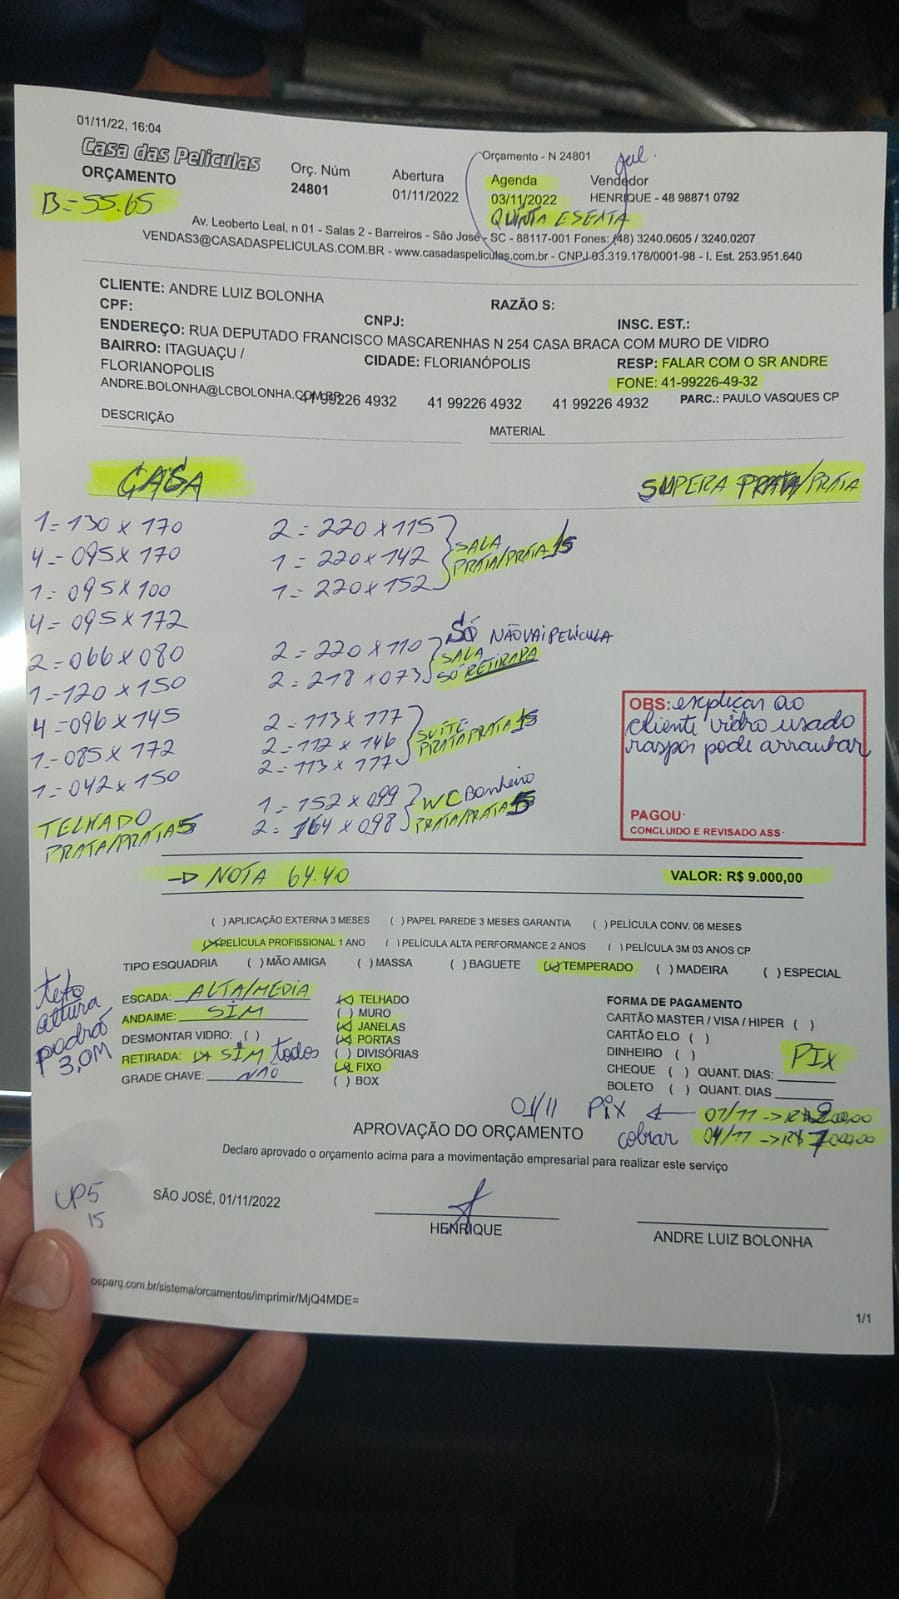 01/11/22, 16:04
Orçamento - N 24801
Casa das Películas
ORÇAMENTO
Orç. Núm
24801
Abertura
01/11/2022
Agenda
03/11/2022
QUINTA E SEXTA
Vendedor
HENRIQUE - 48 98871 0792
B=55.65
Av. Leoberto Leal, n 01 - Salas 2 - Barreiros - São José - SC - 88117-001 Fones: (48) 3240.0605 / 3240.0207
VENDAS3@CASADASPELICULAS.COM.BR - www.casadaspeliculas.com.br - CNPJ 03.319.178/0001-98 - I. Est. 253.951.640
CLIENTE: ANDRE LUIZ BOLONHA
CPF:
CNPJ:
RAZÃO S:
INSC. EST.:
ENDEREÇO: RUA DEPUTADO FRANCISCO MASCARENHAS N 254 CASA BRACA COM MURO DE VIDRO
BAIRRO: ITAGUAÇU /
FLORIANOPOLIS
CIDADE: FLORIANÓPOLIS
RESP: FALAR COM O SR ANDRE
FONE: 41-99226-49-32
ANDRE.BOLONHA@LCBOLONHA.COM.BR
41 99226 4932 41 99226 4932 41 99226 4932
PARC.: PAULO VASQUES CP
DESCRIÇÃO
MATERIAL
CASA
SUPERA PRATA/PRATA
1=130 x 170
4=095 x 170
1=095 x 100
4=095 x 172
2=066 x 080
1=120 x 150
4=096 x 145
1=085 x 172
1=042 x 150
TELHADO
PRATA/PRATA 5
2=220 x 115
1=220 x 142
1=220 x 152
SALA
PRATA/PRATA 15
2=220 x 110
2=218 x 073
SÓ NÃO VAI PELÍCULA
SALA
SÓ RETIRADA
2=113 x 177
2=112 x 146
2=113 x 177
SUÍTE
PRATA/PRATA 15
1=152 x 099
2=164 x 098
WC Banheiro
PRATA/PRATA 15
OBS: explicar ao
cliente vidro usado
raspar pode arranhar
PAGOU:
CONCLUIDO E REVISADO ASS:
NOTA 64.40
VALOR: R$ 9.000,00
( ) APLICAÇÃO EXTERNA 3 MESES ( ) PAPEL PAREDE 3 MESES GARANTIA ( ) PELÍCULA CONV. 06 MESES
(X) PELÍCULA PROFISSIONAL 1 ANO ( ) PELÍCULA ALTA PERFORMANCE 2 ANOS ( ) PELÍCULA 3M 03 ANOS CP
TIPO ESQUADRIA ( ) MÃO AMIGA ( ) MASSA ( ) BAGUETE (X) TEMPERADO ( ) MADEIRA ( ) ESPECIAL
teto
altura
padrão
3,0M
ESCADA: ALTA/MEDIA
ANDAIME: SIM
DESMONTAR VIDRO: ( )
RETIRADA: (X) SIM todos
GRADE CHAVE: NÃO
(X) TELHADO
( ) MURO
(X) JANELAS
(X) PORTAS
( ) DIVISÓRIAS
(X) FIXO
( ) BOX
FORMA DE PAGAMENTO
CARTÃO MASTER / VISA / HIPER ( )
CARTÃO ELO ( )
DINHEIRO ( )
CHEQUE ( ) QUANT. DIAS:
BOLETO ( ) QUANT. DIAS
PIX
01/11 PIX
cobrar 04/11 -> R$
APROVAÇÃO DO ORÇAMENTO
Declaro aprovado o orçamento acima para a movimentação empresarial para realizar este serviço
UP5
15
SÃO JOSÉ, 01/11/2022
HENRIQUE
ANDRE LUIZ BOLONHA
osparq.com.br/sistema/orcamentos/imprimir/MjQ4MDE=
1/1